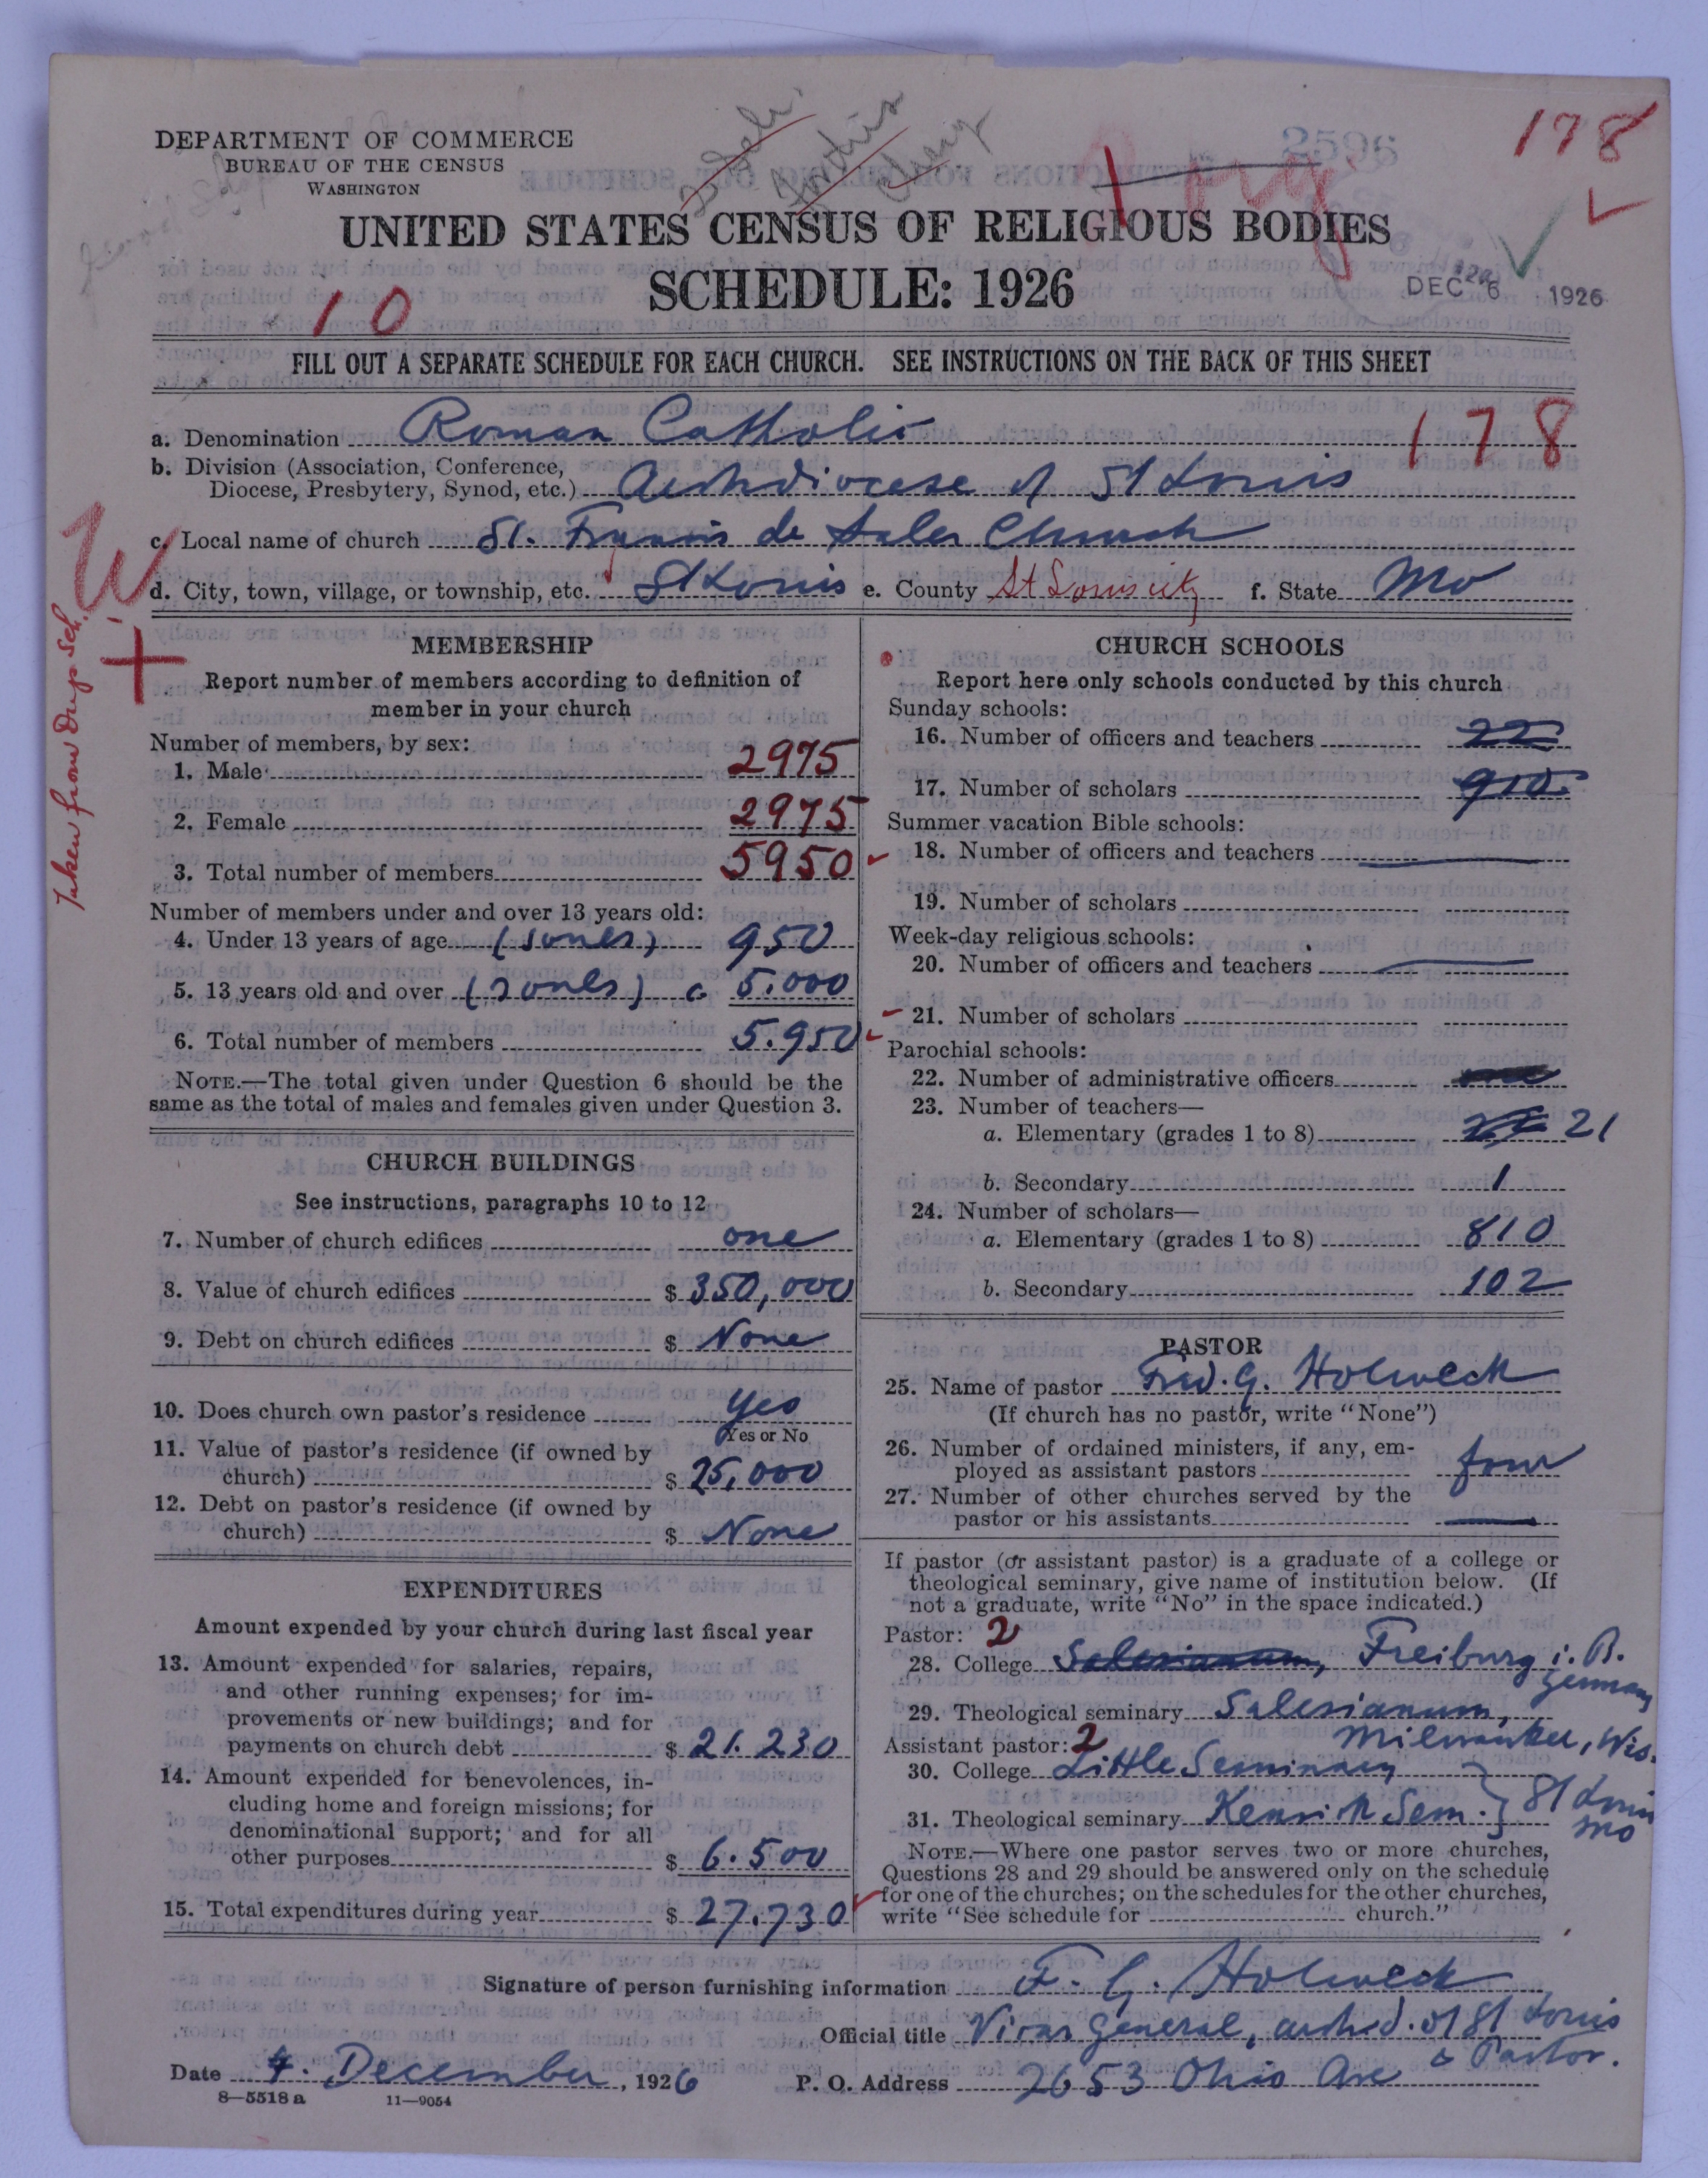 DEPARTMENT OF COMMERCE
BUREAU OF THE CENSUS
WASHINGTON
2596
178
UNITED STATES CENSUS OF RELIGIOUS BODIES
SCHEDULE: 1926
DEC 6 1926
10
FILL OUT A SEPARATE SCHEDULE FOR EACH CHURCH. SEE INSTRUCTIONS ON THE BACK OF THIS SHEET
a. Denomination Roman Catholic 178
b. Division (Association, Conference,
Diocese, Presbytery, Synod, etc.) Archdiocese of St Louis
c. Local name of church St. Francis de Sales Church
d. City, town, village, or township, etc. St Louis e. County St Louis city f. State Mo
W
Taken from Dup Sch.
MEMBERSHIP
Report number of members according to definition of
member in your church
Number of members, by sex:
1. Male 2975
2. Female 2975
3. Total number of members 5950
Number of members under and over 13 years old:
4. Under 13 years of age (souls) 950
5. 13 years old and over (souls) c 5.000
6. Total number of members 5.950
NOTE.—The total given under Question 6 should be the
same as the total of males and females given under Question 3.
CHURCH BUILDINGS
See instructions, paragraphs 10 to 12
7. Number of church edifices one
8. Value of church edifices $ 350,000
9. Debt on church edifices $ None
10. Does church own pastor's residence Yes
Yes or No
11. Value of pastor's residence (if owned by
church) $ 25,000
12. Debt on pastor's residence (if owned by
church) $ None
EXPENDITURES
Amount expended by your church during last fiscal year
13. Amount expended for salaries, repairs,
and other running expenses; for im-
provements or new buildings; and for
payments on church debt $ 21.230
14. Amount expended for benevolences, in-
cluding home and foreign missions; for
denominational support; and for all
other purposes $ 6.500
15. Total expenditures during year $ 27.730
CHURCH SCHOOLS
Report here only schools conducted by this church
Sunday schools:
16. Number of officers and teachers 22
17. Number of scholars 910
Summer vacation Bible schools:
18. Number of officers and teachers
19. Number of scholars
Week-day religious schools:
20. Number of officers and teachers
21. Number of scholars
Parochial schools:
22. Number of administrative officers one
23. Number of teachers—
a. Elementary (grades 1 to 8) 21
b. Secondary 1
24. Number of scholars—
a. Elementary (grades 1 to 8) 810
b. Secondary 102
PASTOR
25. Name of pastor Fred. G. Holweck
(If church has no pastor, write "None")
26. Number of ordained ministers, if any, em-
ployed as assistant pastors four
27. Number of other churches served by the
pastor or his assistants
If pastor (or assistant pastor) is a graduate of a college or
theological seminary, give name of institution below. (If
not a graduate, write "No" in the space indicated.)
Pastor: 2
28. College Salesianum, Freiburg i. B.
Germany
29. Theological seminary Salesianum,
Milwaukee, Wis.
Assistant pastor: 2
30. College Little Seminary
31. Theological seminary Kenrick Sem. } St Louis
Mo
NOTE.—Where one pastor serves two or more churches,
Questions 28 and 29 should be answered only on the schedule
for one of the churches; on the schedules for the other churches,
write "See schedule for church."
Signature of person furnishing information F. G. Holweck
Official title Vicar General, archd. of St Louis
& Pastor.
Date 4. December, 1926 P. O. Address 2653 Ohio Ave
8—5518 a 11—9054